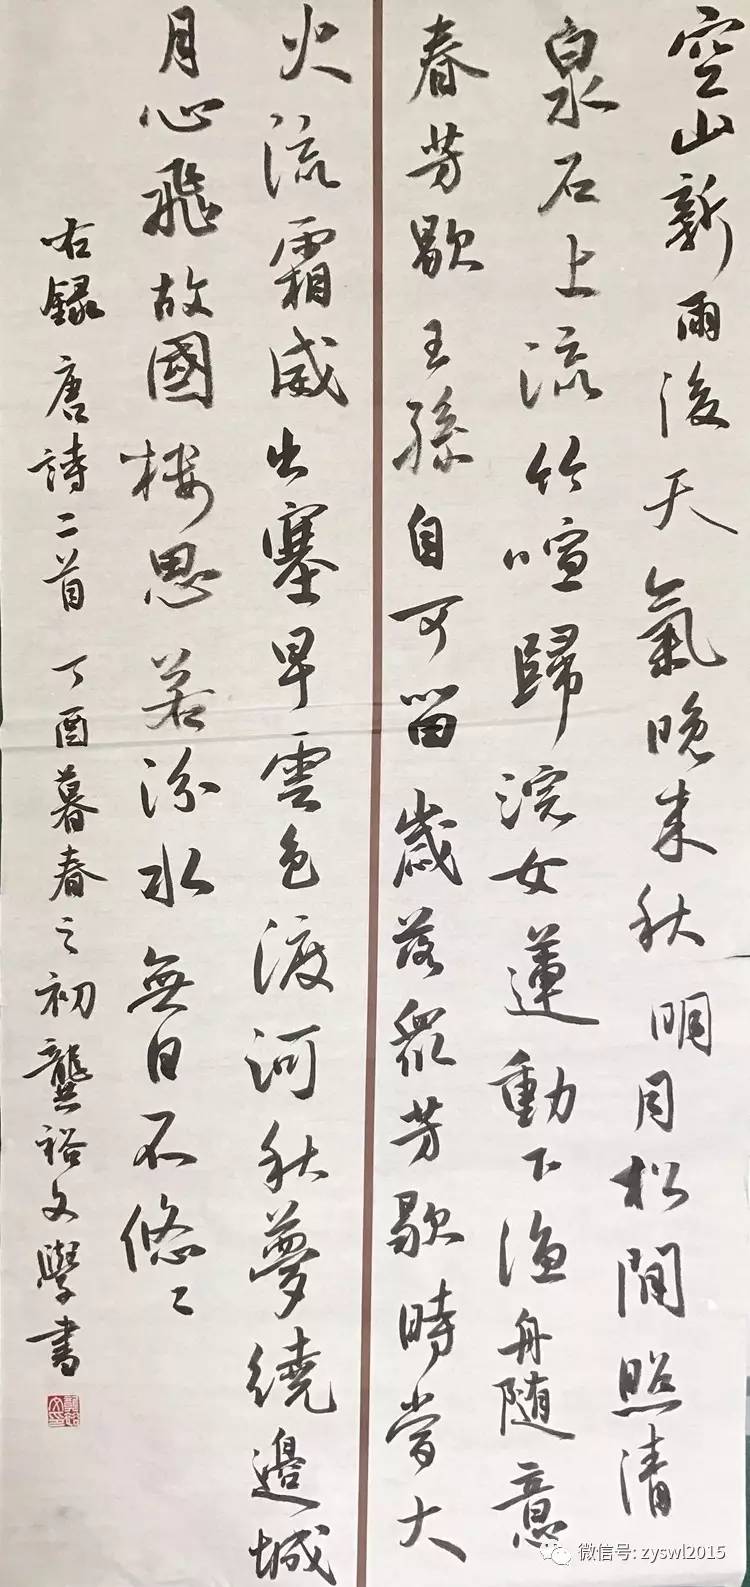 空山新雨後天氣晚来秋明月松間照清
泉石上流竹喧歸浣女蓮動下漁舟随意
春芳歇王孫自可留歲落衆芳歇時當大
火流霜威出塞早雲色渡河秋夢繞邊城
月心飛故國楼思若汾水無日不悠〻
右録唐詩二首丁酉暮春之初龔裕文學書
微信号: zyswl2015